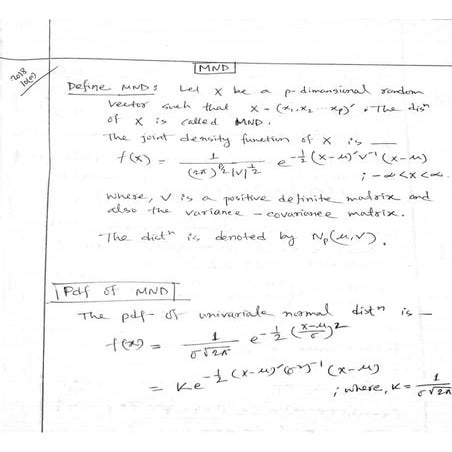 2018
10(a)
MND
Define MND: Let X be a p-dimensional random
vector such that X = (x₁, x₂ ... xₚ)′. The distⁿ
of X is called MND.
The joint density function of X is —
f(x) = 1/((2π)^{p/2} |V|^{1/2}) e^{-1/2 (x-μ)′ V⁻¹ (x-μ)}
; -∞ < x < ∞
where, V is a positive definite matrix and
also the variance - covariance matrix.
The distⁿ is denoted by Nₚ(μ, V).
Pdf of MND
The pdf of univariate normal distⁿ is —
f(x) = 1/(σ√2π) e^{-1/2 ((x-μ)/σ)²}
= K e^{-1/2 (x-μ)′ (σ²)⁻¹ (x-μ)}
; where, K = 1/(σ√2π)